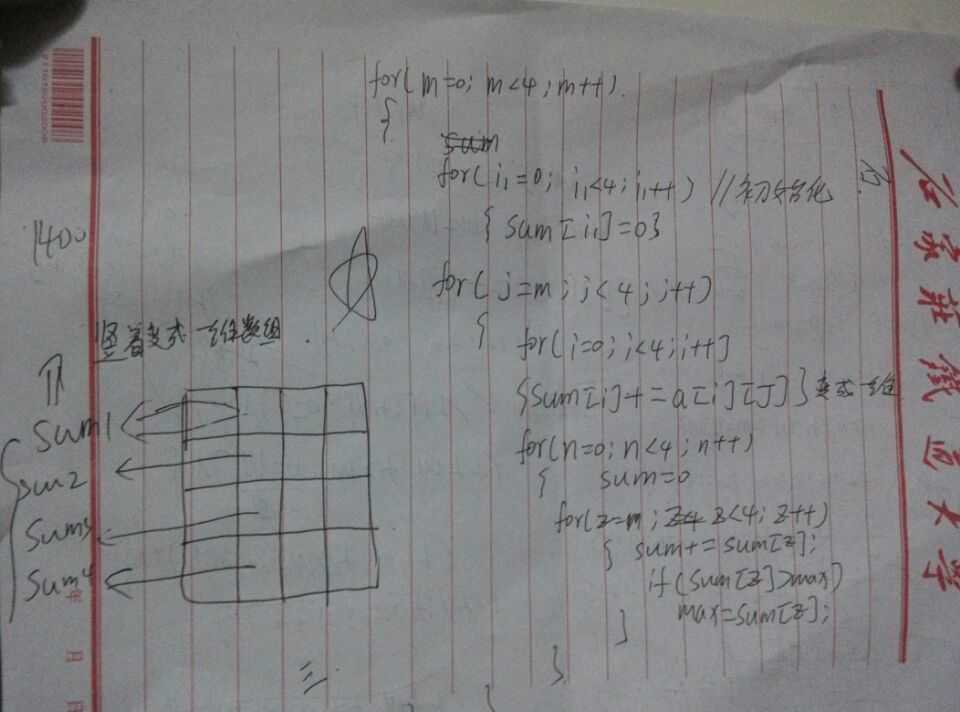 for( m=0; m<4; m++).
{
sum
for( i1=0; i1<4; i1++) //初始化
{ sum[i1]=0}
for( j=m; j<4; j++)
{
for(i=0; i<4; i++]
{sum[i]+=a[i][J]}变成一维
for(n=0; n<4; n++)
{ sum=0
for(z=m; z<4 z<4; z++)
{ sum+=sum[z];
if(sum[z]>max)
max=sum[z];
}
}
}
1400
竖着变成一维数组.
sum1
sum2
sum3
sum4
三.
五.
石家莊鐵道大学
年
月
日